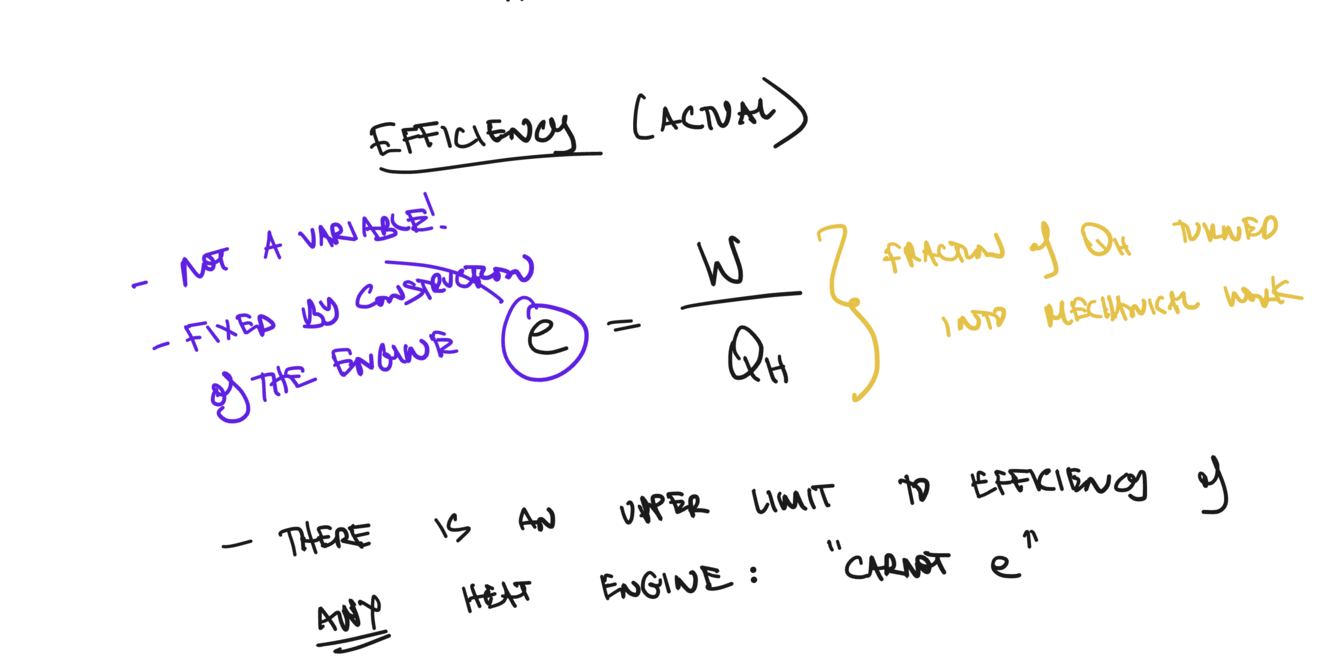 EFFICIENCY (ACTUAL)
- NOT A VARIABLE!
- FIXED BY CONSTRUCTION
of THE ENGINE
e = W / QH
FRACTION of QH TURNED
INTO MECHANICAL WORK
- THERE IS AN UPPER LIMIT TO EFFICIENCY of
ANY HEAT ENGINE: "CARNOT e"